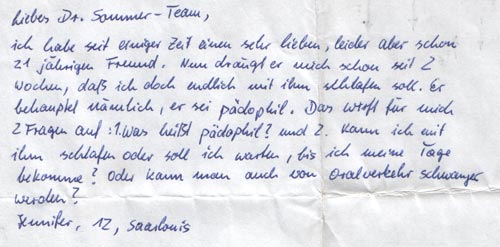 Liebes Dr. Sommer-Team,
ich habe seit einiger Zeit einen sehr lieben, leider aber schon
21 jährigen Freund. Nun drängt er mich schon seit 2
Wochen, daß ich doch endlich mit ihm schlafen soll. Er
behauptet nämlich, er sei pädophil. Das wirft für mich
2 Fragen auf: 1. Was heißt pädophil? und 2. Kann ich mit
ihm schlafen oder soll ich warten, bis ich meine Tage
bekomme? Oder kann man auch von Oralverkehr schwanger
werden?
Jennifer, 12, Saarlouis